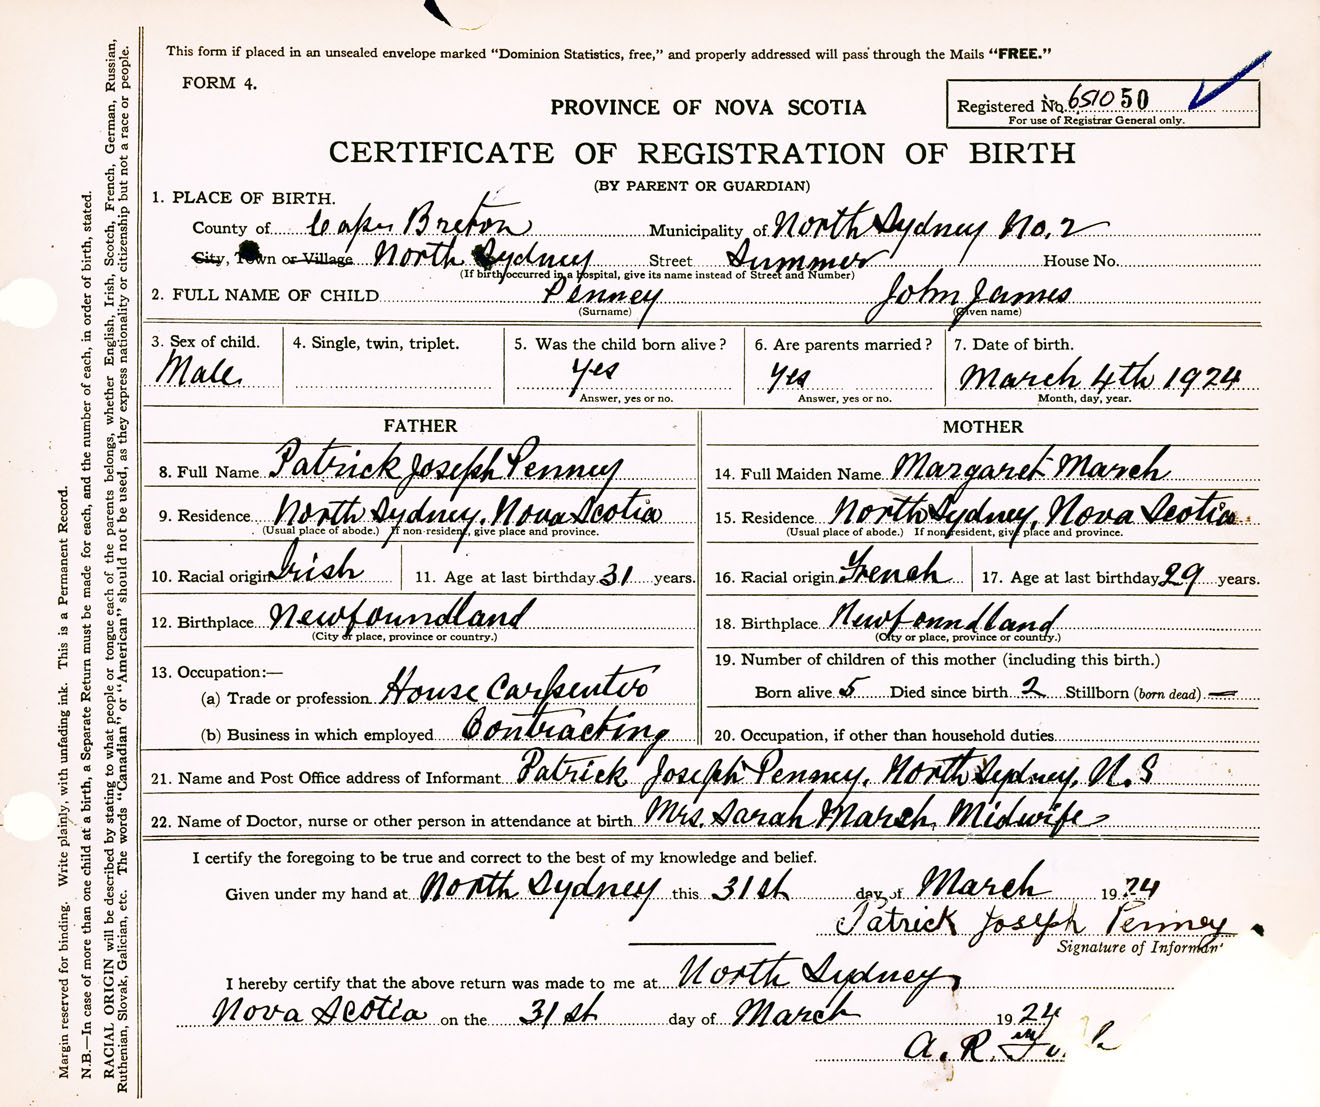 This form if placed in an unsealed envelope marked “Dominion Statistics, free,” and properly addressed will pass through the Mails “FREE.”
FORM 4.
PROVINCE OF NOVA SCOTIA
Registered No. 6510 50
For use of Registrar General only.
CERTIFICATE OF REGISTRATION OF BIRTH
(BY PARENT OR GUARDIAN)
1. PLACE OF BIRTH.
County of Cape Breton Municipality of North Sydney No. 2
City, Town or Village North Sydney Street Summer House No.
(If birth occurred in a hospital, give its name instead of Street and Number)
2. FULL NAME OF CHILD Penney John James
(Surname) (Given name)
3. Sex of child. 4. Single, twin, triplet. 5. Was the child born alive? 6. Are parents married? 7. Date of birth.
Male Yes Yes March 4th 1924
Answer, yes or no. Answer, yes or no. Month, day, year.
FATHER MOTHER
8. Full Name Patrick Joseph Penney 14. Full Maiden Name Margaret March
9. Residence North Sydney, Nova Scotia 15. Residence North Sydney, Nova Scotia
(Usual place of abode.) If non-resident, give place and province. (Usual place of abode.) If non-resident, give place and province.
10. Racial origin Irish 11. Age at last birthday 31 years. 16. Racial origin French 17. Age at last birthday 29 years.
12. Birthplace Newfoundland 18. Birthplace Newfoundland
(City or place, province or country.) (City or place, province or country.)
13. Occupation:— 19. Number of children of this mother (including this birth.)
(a) Trade or profession House Carpenter Born alive 5 Died since birth 2 Stillborn (born dead) —
(b) Business in which employed Contracting 20. Occupation, if other than household duties
21. Name and Post Office address of Informant Patrick Joseph Penney, North Sydney, N.S
22. Name of Doctor, nurse or other person in attendance at birth Mrs. Sarah March, Midwife
I certify the foregoing to be true and correct to the best of my knowledge and belief.
Given under my hand at North Sydney this 31st day of March 1924
Patrick Joseph Penney
Signature of Informan
I hereby certify that the above return was made to me at North Sydney,
Nova Scotia on the 31st day of March 1924
A. R.
Margin reserved for binding. Write plainly, with unfading ink. This is a Permanent Record.
N.B.—In case of more than one child at a birth, a Separate Return must be made for each, and the number of each, in order of birth, stated.
RACIAL ORIGIN will be described by stating to what people or tongue each of the parents belongs, whether English, Irish, Scotch, French, German, Russian,
Ruthenian, Slovak, Galician, etc. The words “Canadian” or “American” should not be used, as they express nationality or citizenship but not a race or people.